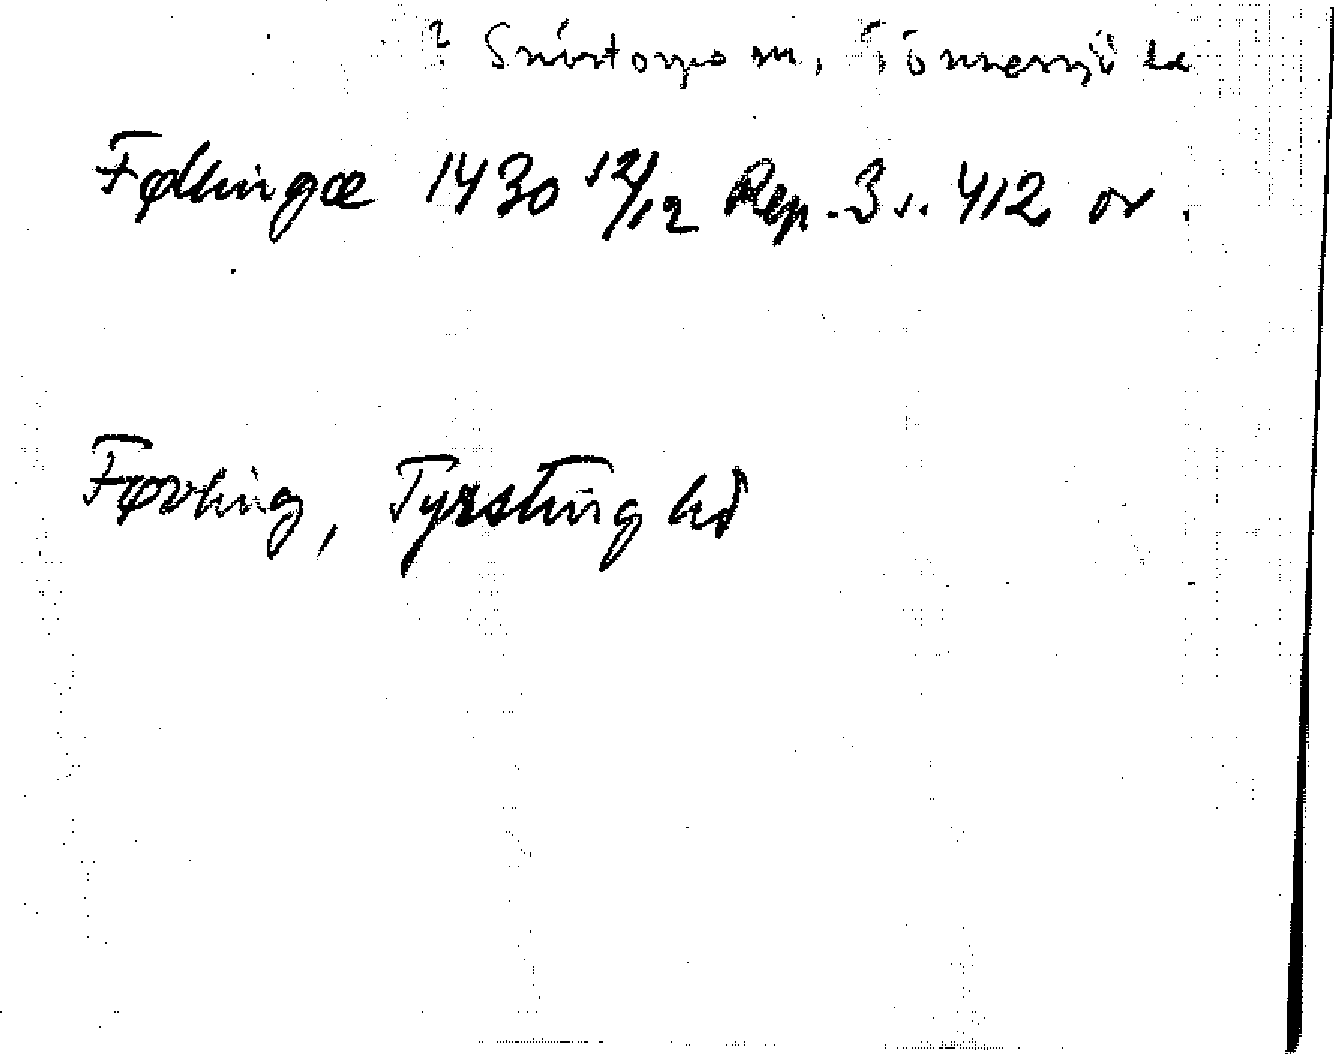 ? Snöstorps sn, Tönnersjö hd
Følhingæ 1430 12/12 Rep. 3 s. 412 or.
Føvling, Tyrsting hd